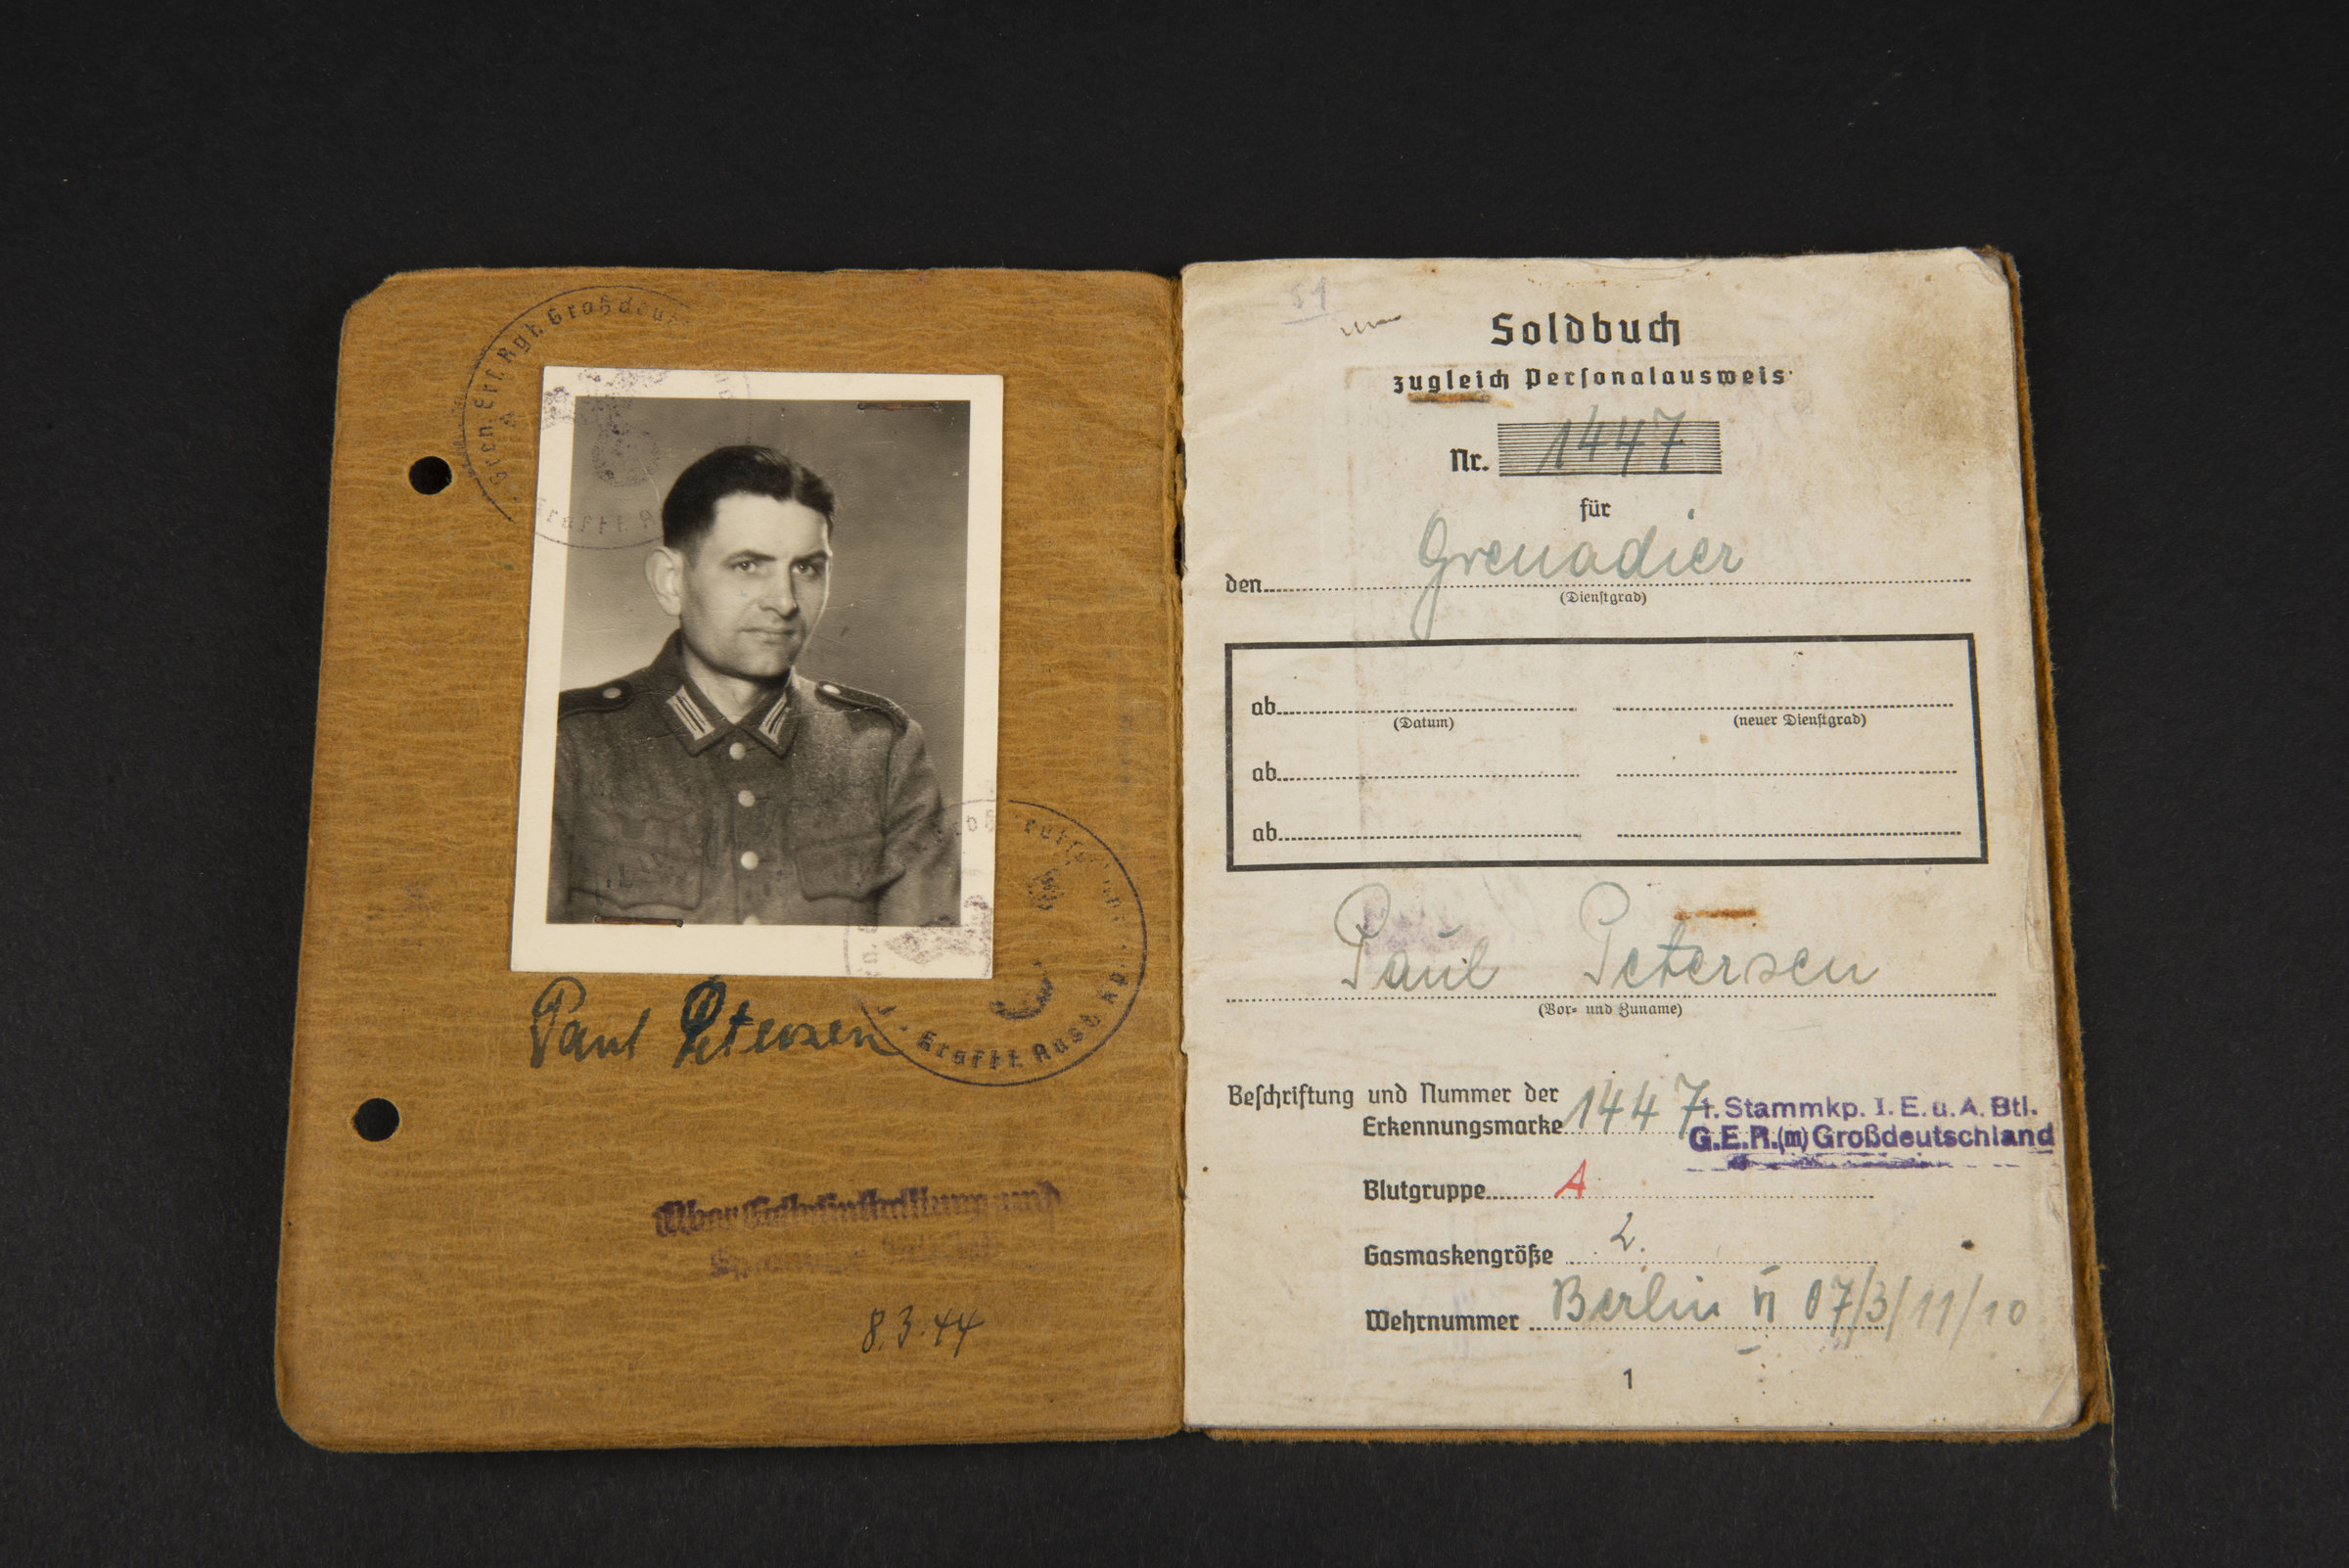 Gren. Ers. Rgt. Großdeu
Paul Petersen
Krafft. Ausb. Kp.
8.3.44
51
Soldbuch
zugleich Perſonalausweis
Nr. 1447
für
den Grenadier
(Dienſtgrad)
ab
(Datum) (neuer Dienſtgrad)
ab
ab
Paul Petersen
(Vor- und Zuname)
Beſchriftung und Nummer der
Erkennungsmarke 1447
1. Stammkp. I. E. u. A. Btl.
G.E.R.(m) Großdeutschland
Blutgruppe A
Gasmaskengröße 2.
Wehrnummer Berlin VI 07/3/11/10
1